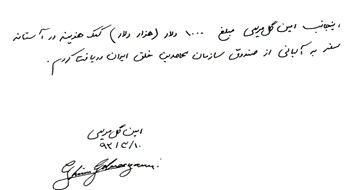 اینجانب امین گل مریمی مبلغ ۱۰۰۰ دلار (هزار دلار) کمک هزینه در آستانه
سفر به آلبانی از صندوق سازمان مجاهدین خلق ایران دریافت کردم.
امین گل مریمی
۹۲/۲/۱۰